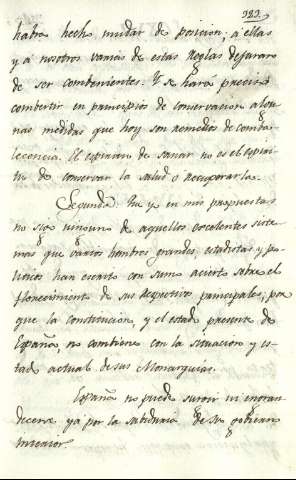 323.
habra hecho mudar de posicion, á ellas
y á nosotros varias de estas Reglas dejaran
de ser combenientes. Y se hará preciso
combertir en principios de conservacion algu-
nas medidas que hoy son remedios de comba-
lecencia. El espiritu de sanar no es el espiri-
tu de conservar la salud ó recuperarla.
Segunda. Que y en mis propuestas
no sigo ninguno de aquellos excelentes siste-
mas que varios hombres grandes, estadistas y po-
liticos han escrito con sumo acierto sobre el
florecimiento de sus respectivos principales; por
que la constitucion, y el estado presente de
España, no combiene con la situacion y es-
tad actual de sus Monarquias.
España no puede ni engran-
decerse ya por la sabiduria de su gobierno
interior.